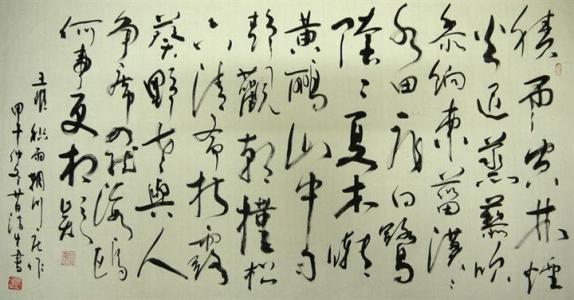 積雨空林煙
火遲蒸藜炊
黍餉東菑漠〻
水田飛白鷺
陰〻夏木囀
黃鸝山中習
靜觀朝槿松
下清齋折露
葵野老與人
爭席罷海鷗
何事更相疑
王維積雨輞川庄作
甲午仲冬書